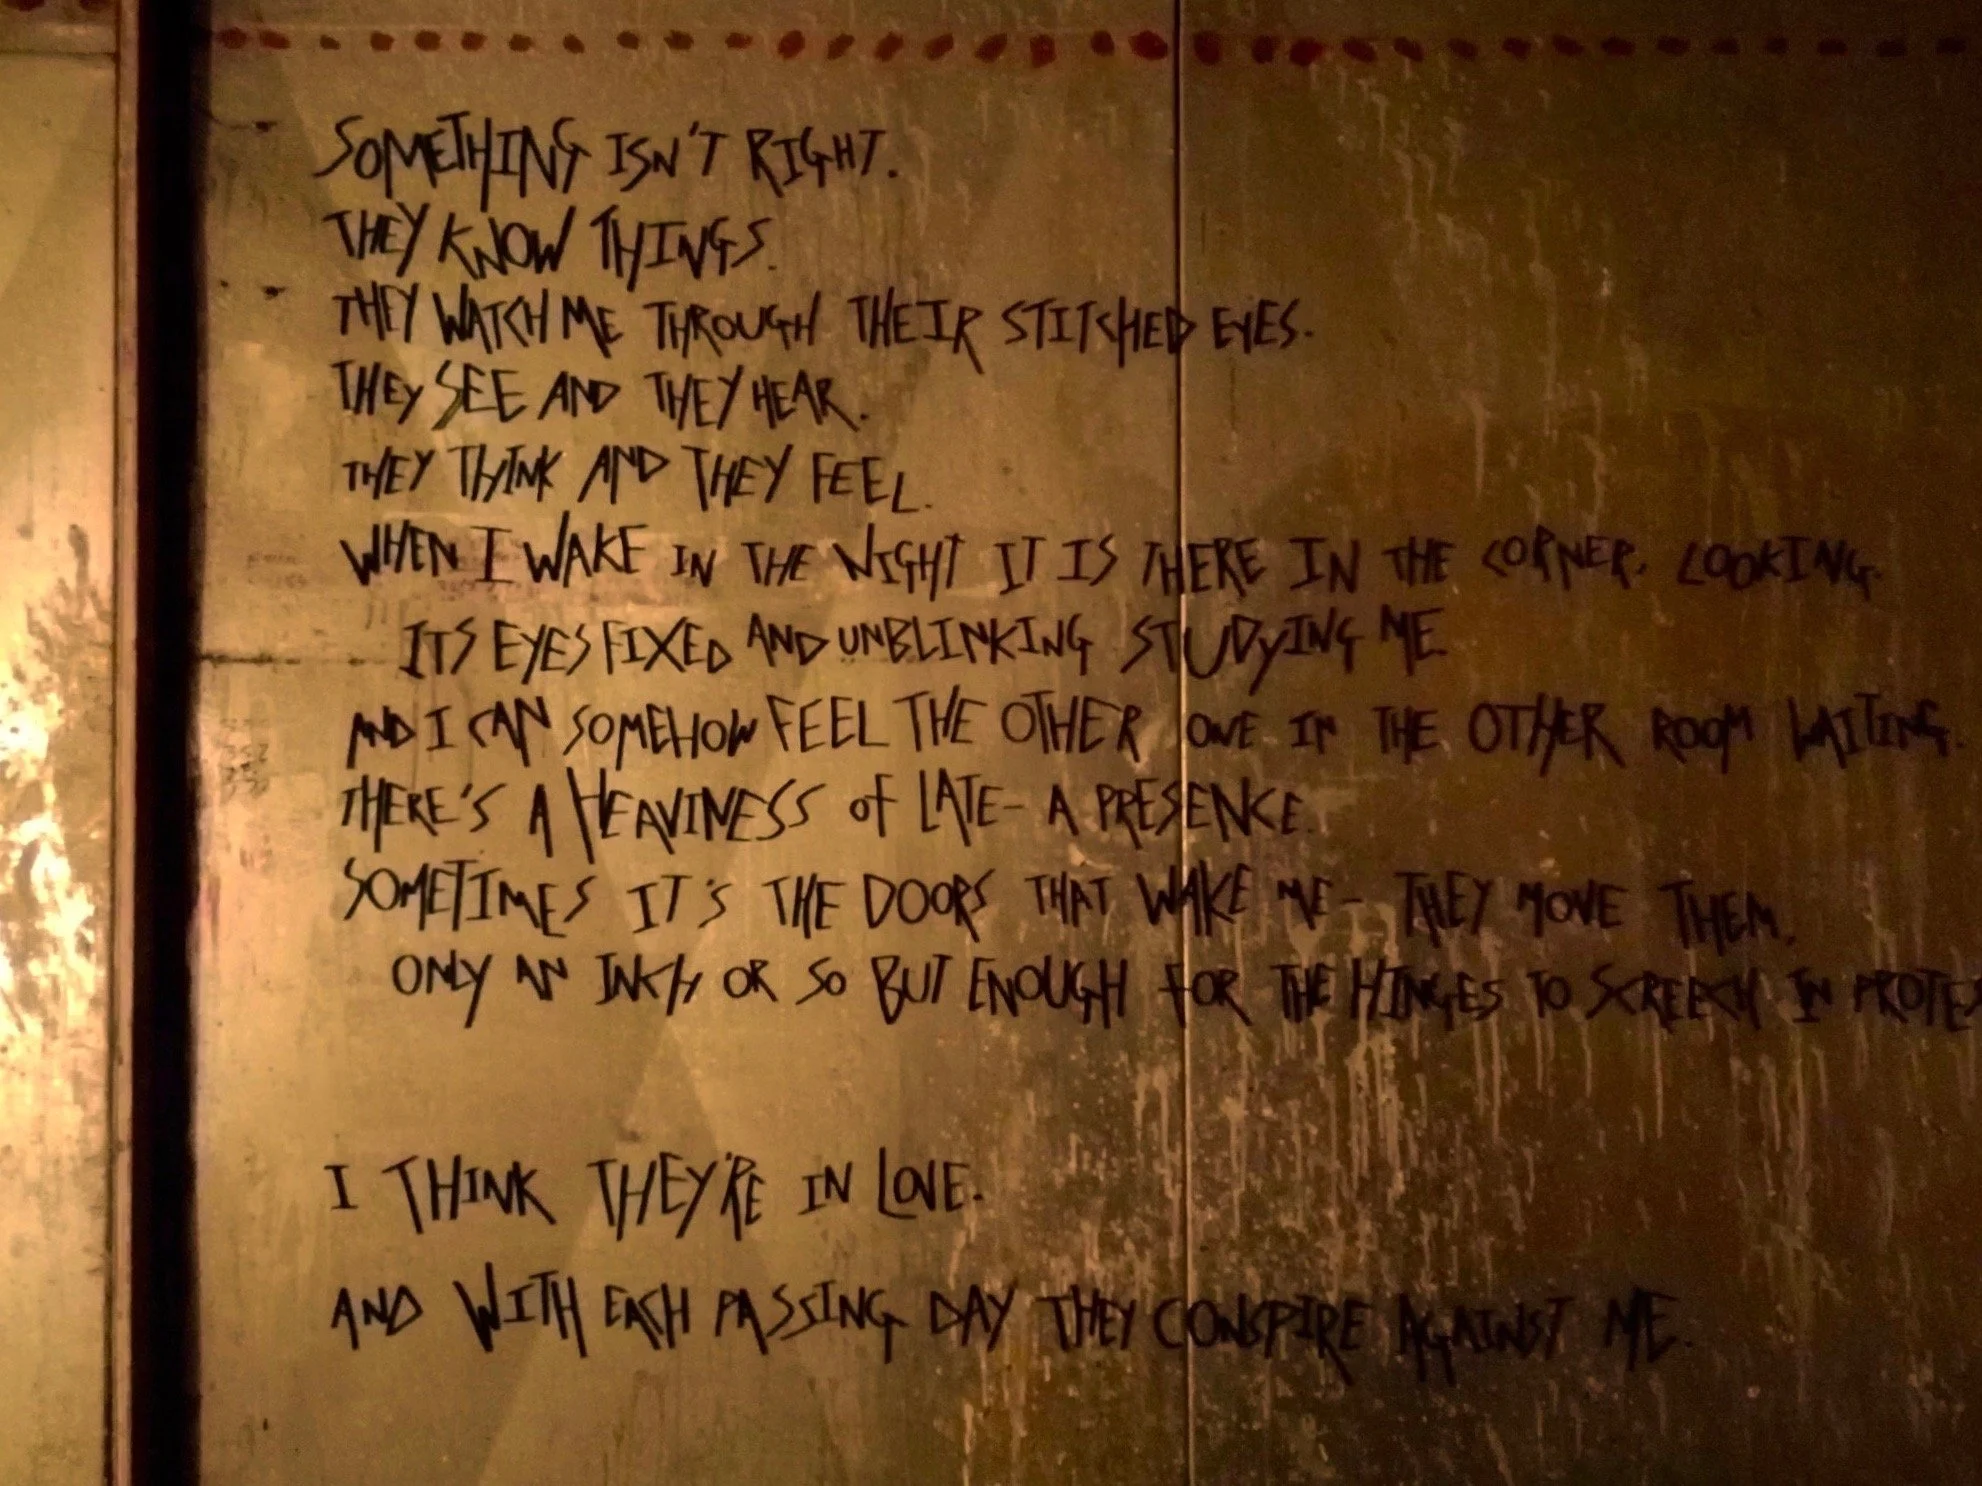 SOMETHING ISN'T RIGHT.
THEY KNOW THINGS.
THEY WATCH ME THROUGH THEIR STITCHED EYES.
THEY SEE AND THEY HEAR.
THEY THINK AND THEY FEEL.
WHEN I WAKE IN THE NIGHT IT IS THERE IN THE CORNER, LOOKING.
ITS EYES FIXED AND UNBLINKING STUDYING ME.
AND I CAN SOMEHOW FEEL THE OTHER ONE IN THE OTHER ROOM WAITING.
THERE'S A HEAVINESS OF LATE- A PRESENCE.
SOMETIMES IT'S THE DOORS THAT WAKE ME - THEY MOVE THEM.
ONLY AN INCH OR SO BUT ENOUGH FOR THE HINGES TO SCREECH IN PROTE
I THINK THEY'RE IN LOVE.
AND WITH EACH PASSING DAY THEY CONSPIRE AGAINST ME.